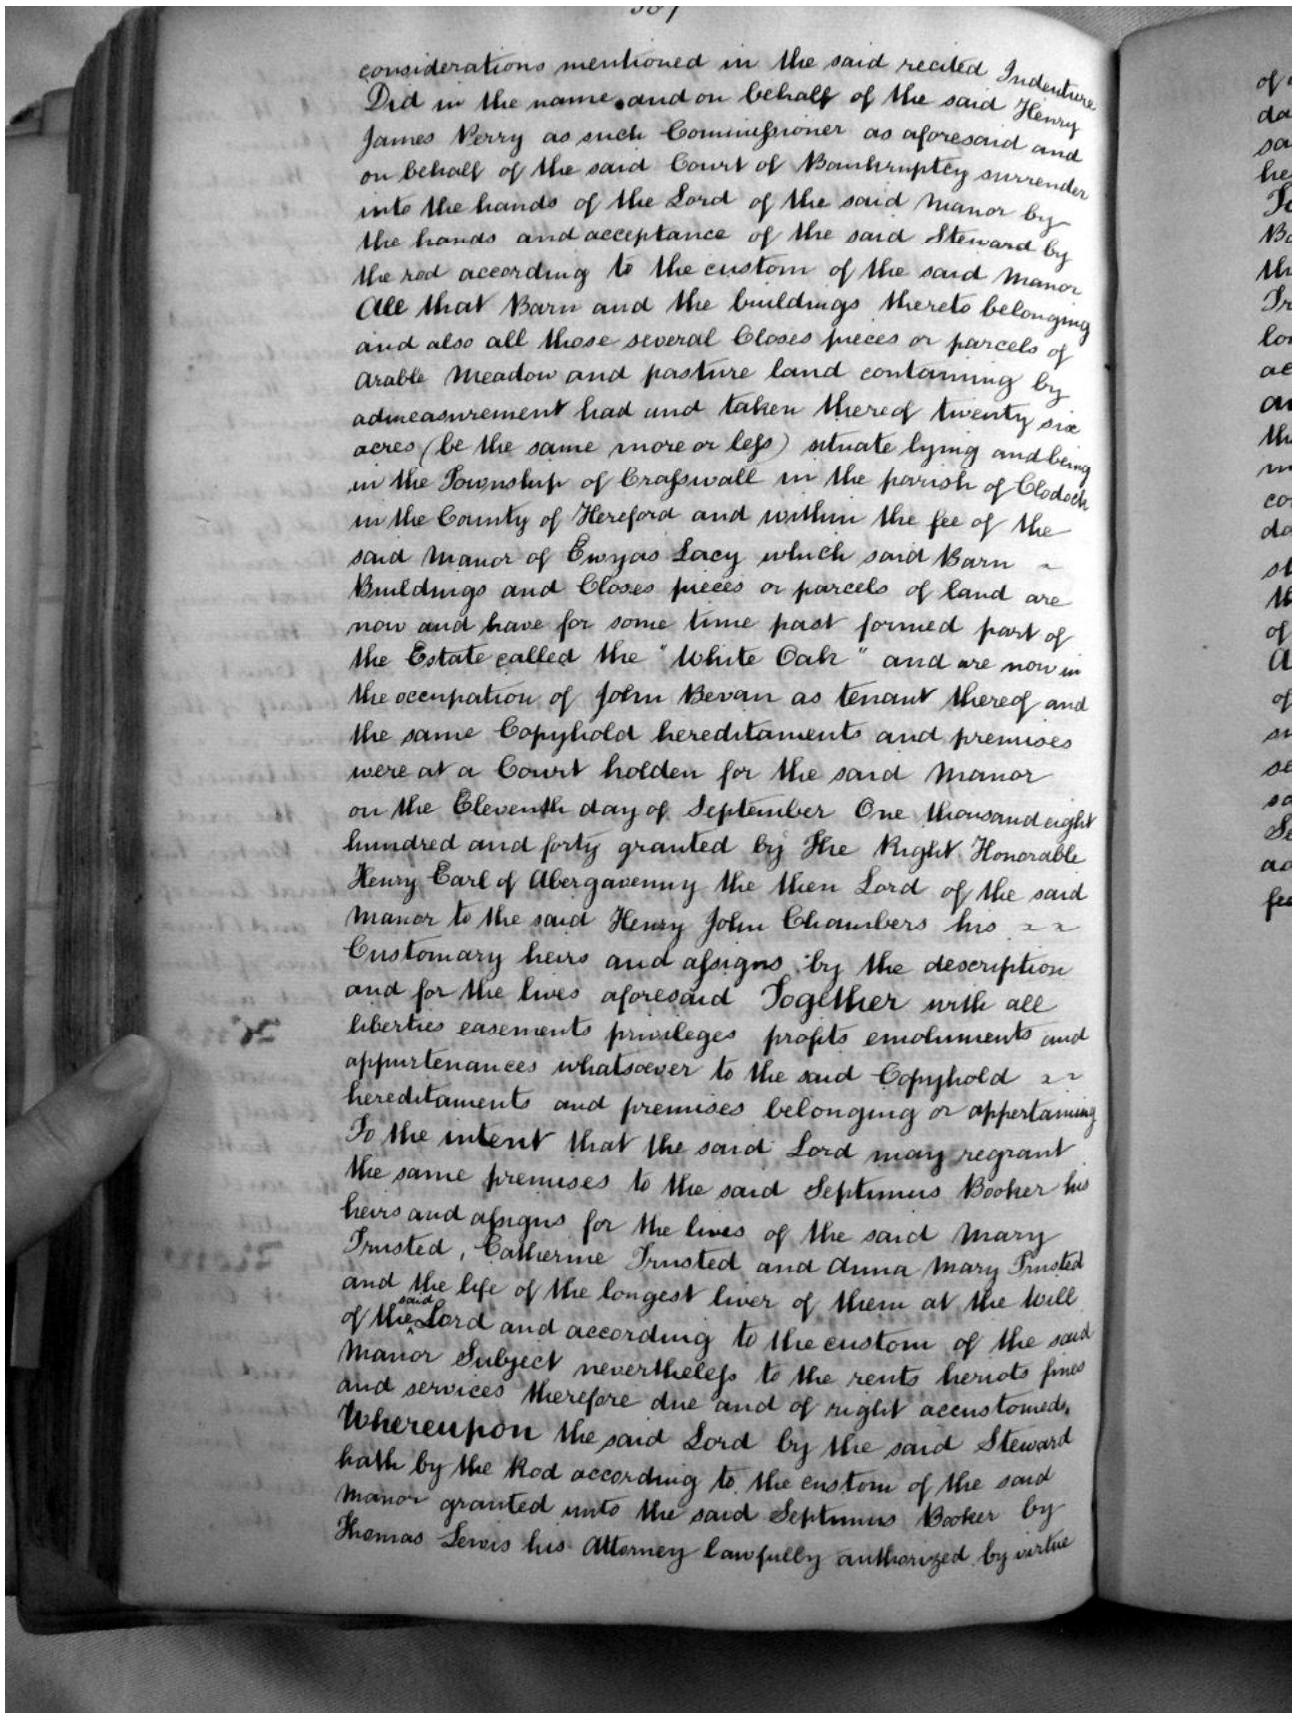 considerations mentioned in the said recited Indenture
Did in the name and on behalf of the said Henry
James Perry as such Commissioner as aforesaid and
on behalf of the said Court of Bankruptcy surrender
into the hands of the Lord of the said Manor by
the hands and acceptance of the said Steward by
the rod according to the custom of the said Manor
All that Barn and the buildings thereto belonging
and also all those several Closes pieces or parcels of
Arable Meadow and pasture land containing by
admeasurement had and taken thereof twenty six
acres (be the same more or less) situate lying and being
in the Township of Crasswall in the parish of Clodock
in the County of Hereford and within the fee of the
said Manor of Ewyas Lacy which said Barn ~
Buildings and Closes pieces or parcels of land are
now and have for some time past formed part of
the Estate called the "White Oak" and are now in
the occupation of John Bevan as tenant thereof and
the same Copyhold hereditaments and premises
were at a Court holden for the said Manor
on the Eleventh day of September One thousand eight
hundred and forty granted by The Right Honorable
Henry Earl of Abergavenny the then Lord of the said
Manor to the said Henry John Chambers his ~ ~
Customary heirs and assigns by the description
and for the lives aforesaid Together with all
liberties easements privileges profits emoluments and
appurtenances whatsoever to the said Copyhold ~ ~
hereditaments and premises belonging or appertaining
To the intent that the said Lord may regrant
the same premises to the said Septimus Booker his
heirs and assigns for the lives of the said Mary
Trusted, Catherine Trusted and Anna Mary Trusted
and the life of the longest liver of them at the Will
of the said Lord and according to the custom of the said
Manor Subject nevertheless to the rents heriots fines
and services therefore due and of right accustomed.
Whereupon the said Lord by the said Steward
hath by the Rod according to the custom of the said
Manor granted unto the said Septimus Booker by
Thomas Lewis his Attorney lawfully authorized by virtue